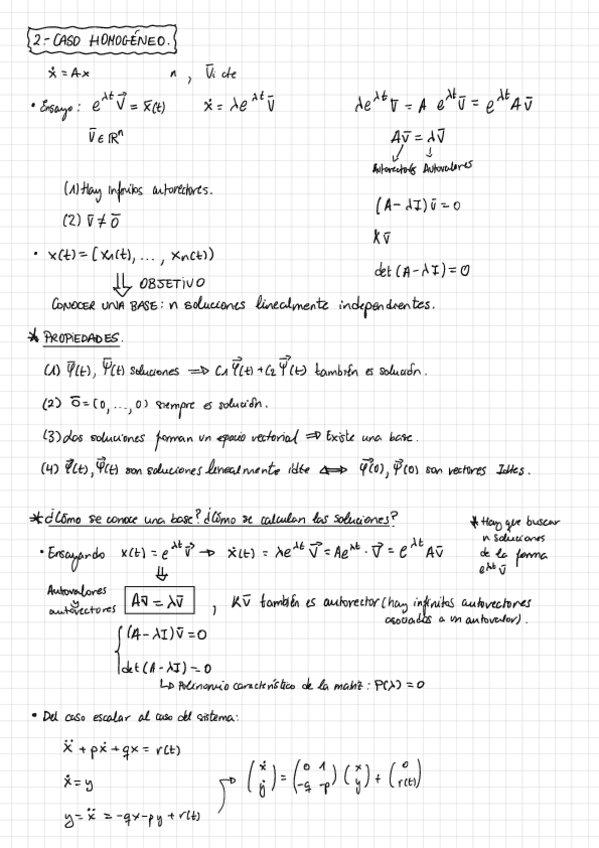 2.- CASO HOMOGÉNEO.
ẋ = Ax n , v̄i cte
• Ensayo: e^λt v⃗ = x̄(t) ẋ = λe^λt v̄ λe^λt v̄ = A e^λt v̄ = e^λt Av̄
v̄ ∈ ℝⁿ Av̄ = λv̄
Autovectores Autovalores
(1) Hay infinitos autovectores.
(A - λI)v̄ = 0
(2) v̄ ≠ 0̄
Kv̄
• x(t) = (x₁(t), ..., xn(t))
det (A - λI) = 0
⇓ OBJETIVO
CONOCER UNA BASE: n soluciones linealmente independientes.
* PROPIEDADES.
(1) φ̄(t), ψ̄(t) soluciones ⇒ C₁ φ⃗(t) + C₂ ψ⃗(t) también es solución.
(2) 0̄ = (0, ..., 0) siempre es solución.
(3) Las soluciones forman un espacio vectorial ⇒ Existe una base.
(4) φ⃗(t), ψ⃗(t) son soluciones linealmente idte ⇔ φ⃗(0), ψ⃗(0) son vectores Idtes.
* ¿Cómo se conoce una base? ¿Cómo se calculan las soluciones?
* Hay que buscar
n soluciones
de la forma
e^λt v̄
• Ensayando x(t) = e^λt v⃗ → ẋ(t) = λe^λt v⃗ = Ae^λt · v⃗ = e^λt Av̄
⇓
Autovalores
y
autovectores
Av̄ = λv̄ , Kv̄ también es autovector (hay infinitos autovectores
asociados a un autovalor).
{ (A - λI)v̄ = 0
det (A - λI) = 0
↳ Polinomio característico de la matriz: P(λ) = 0
• Del caso escalar al caso del sistema:
ẍ + pẋ + qx = r(t)
ẋ = y
ẏ = ẍ = -qx - py + r(t)
→ (ẋ ẏ) = (0 1 -q -p) (x y) + (0 r(t))